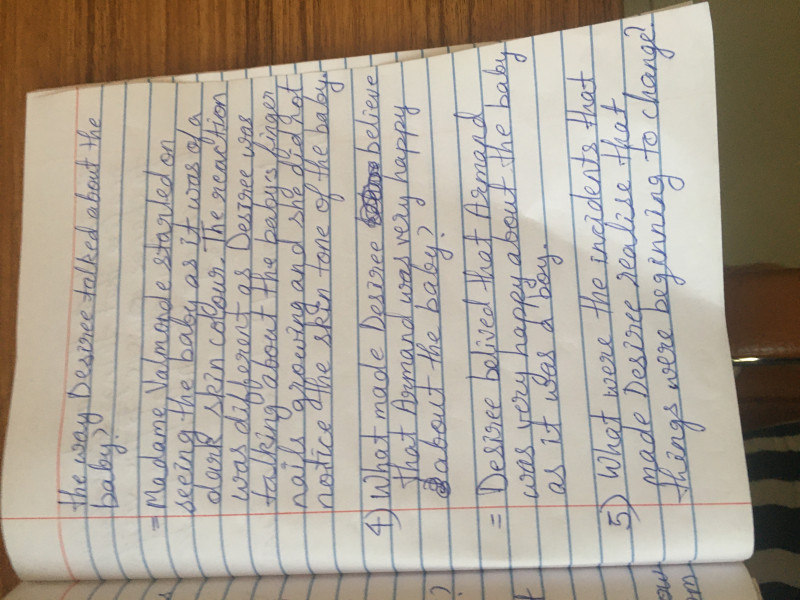 the way Desiree talked about the
baby?
= Madame Valmonde startled on
seeing the baby as it was of a
dark skin colour. The reaction
was different as Desiree was
talking about the baby's finger
nails growing and she did not
notice the skin tone of the baby.
4) What made Desiree believe
that Armand was very happy
about the baby?
= Desiree belived that Armand
was very happy about the baby
as it was a boy.
5) What were the incidents that
made Desiree realise that
things were beginning to change?